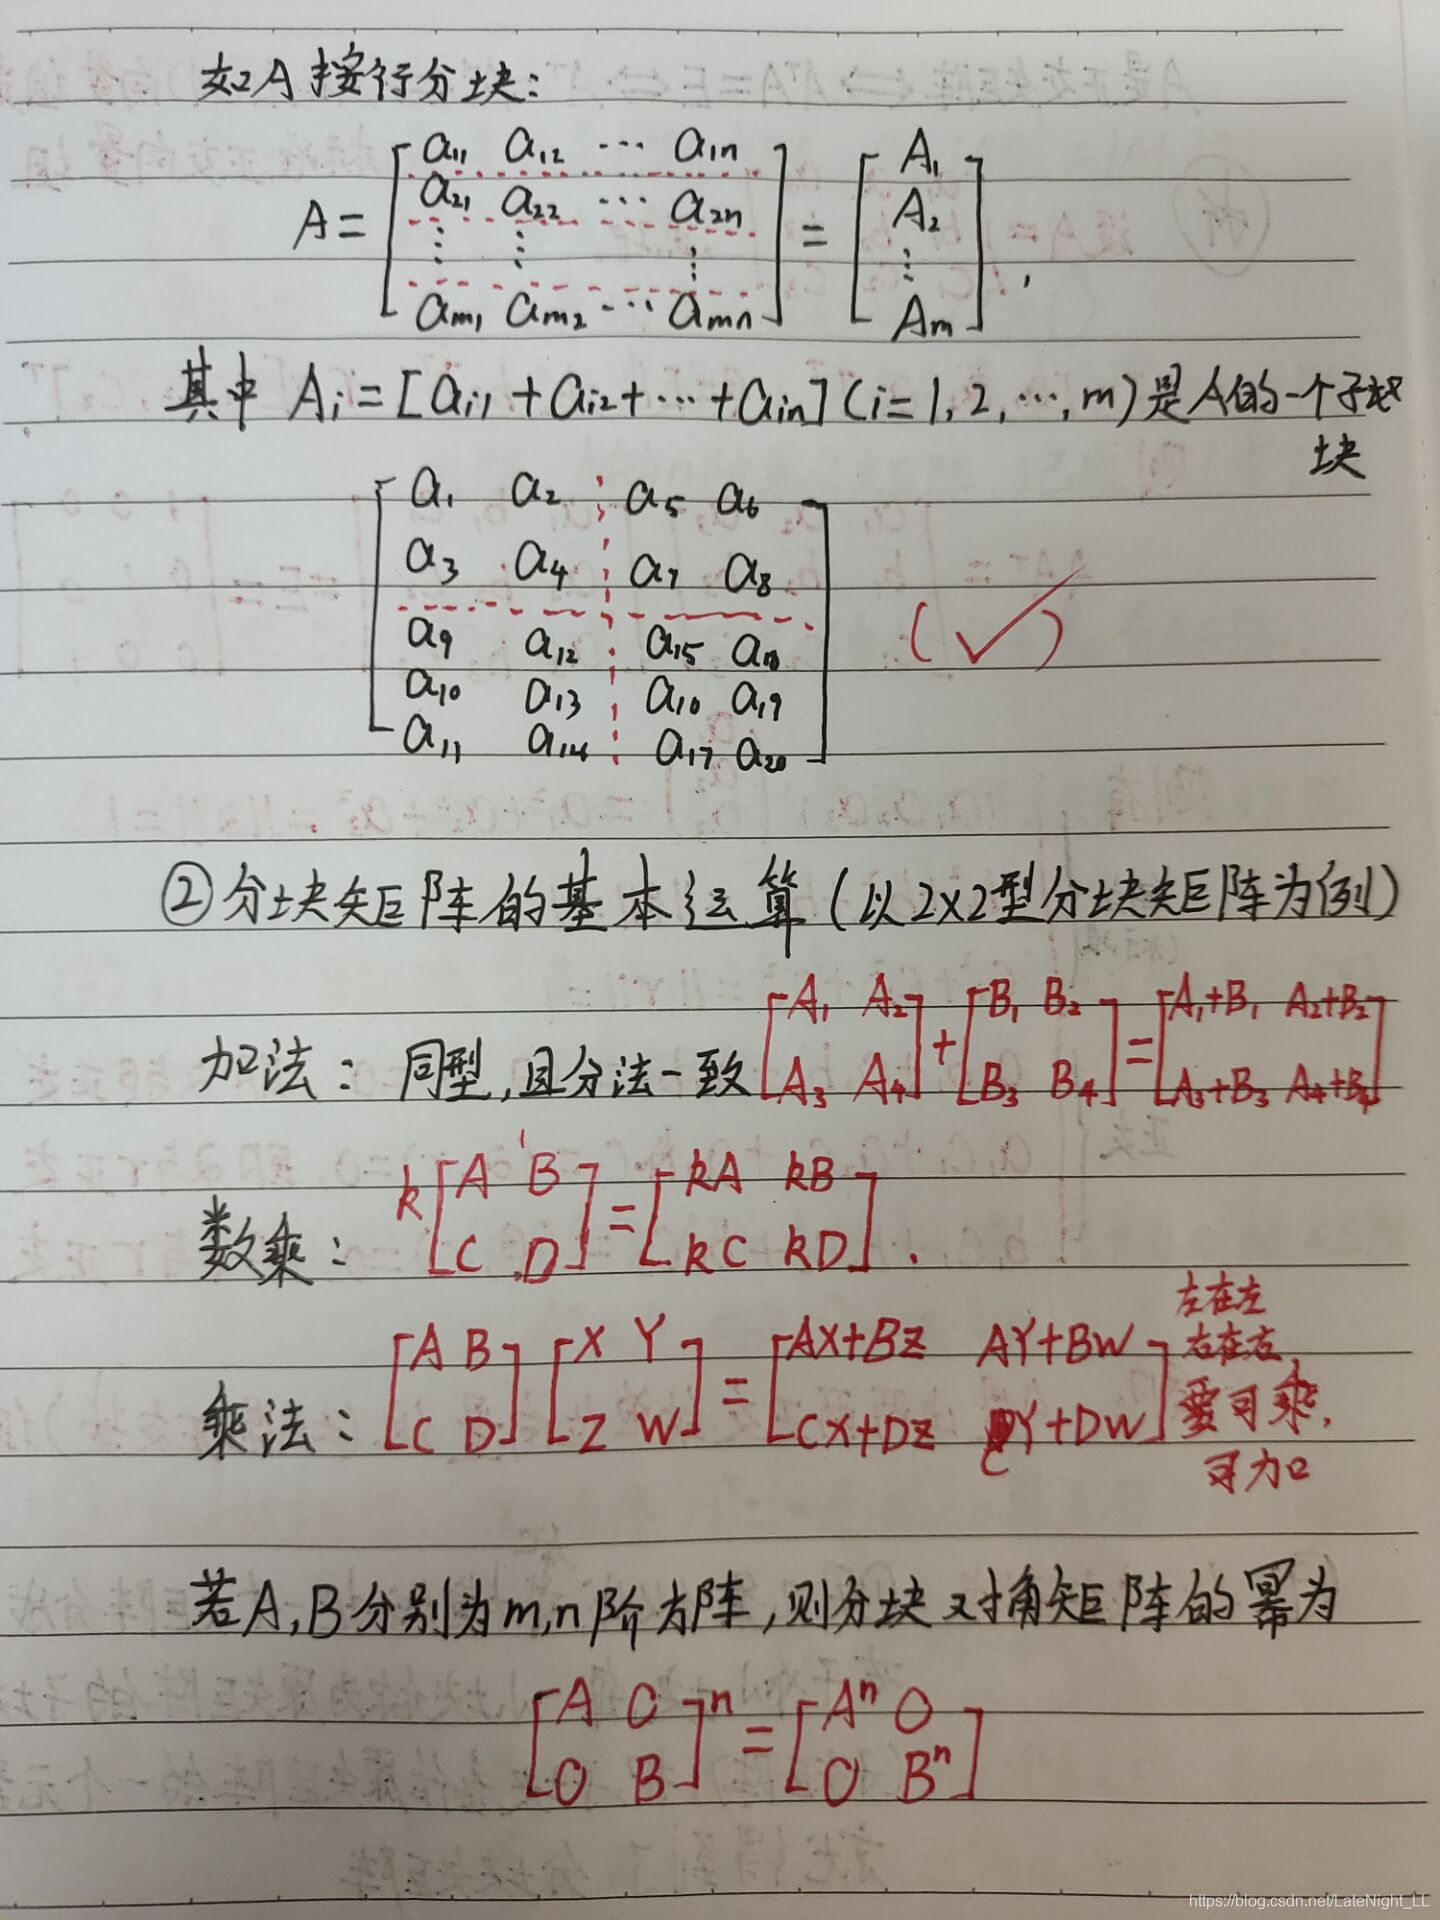 如A按行分块：
A = [ a₁₁ a₁₂ ⋯ a₁ₙ ; a₂₁ a₂₂ ⋯ a₂ₙ ; ⋮ ⋮ ⋮ ; aₘ₁ aₘ₂ ⋯ aₘₙ ] = [ A₁ ; A₂ ; ⋮ ; Aₘ ] ,
其中 Aᵢ = [aᵢ₁ + aᵢ₂ + ⋯ + aᵢₙ] (i = 1, 2, ⋯, m) 是A的一个子
块
a₁ a₂ a₅ a₆
a₃ a₄ a₇ a₈
(✓)
a₉ a₁₂ a₁₅ a₁₈
a₁₀ a₁₃ a₁₆ a₁₉
a₁₁ a₁₄ a₁₇ a₂₀
②分块矩阵的基本运算（以2×2型分块矩阵为例）
加法：同型，且分法一致 [ A₁ A₂ ; A₃ A₄ ] + [ B₁ B₂ ; B₃ B₄ ] = [ A₁+B₁ A₂+B₂ ; A₃+B₃ A₄+B₄ ]
数乘：k [ A B ; C D ] = [ kA kB ; kC kD ] .
乘法：[ A B ; C D ] [ X Y ; Z W ] = [ AX+BZ AY+BW ; CX+DZ CY+DW ]
左在左
右在右
要可乘，
可加
若A,B分别为m,n阶方阵，则分块对角矩阵的幂为
[ A O ; O B ]ⁿ = [ Aⁿ O ; O Bⁿ ]
https://blog.csdn.net/LateNight_LL